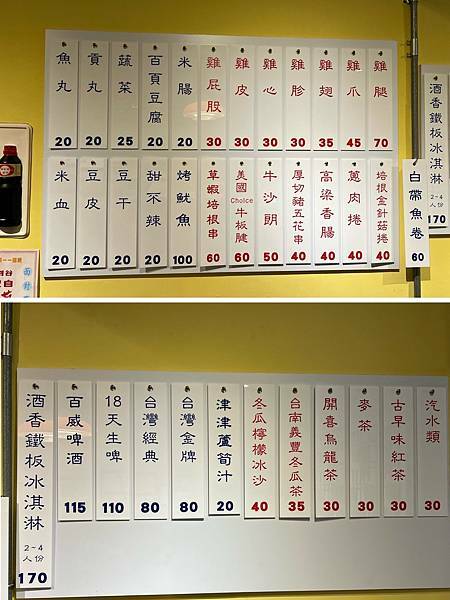 魚丸 20
貢丸 20
蔬菜 25
百頁豆腐 20
米腸 20
雞屁股 30
雞皮 30
雞心 30
雞胗 30
雞翅 35
雞爪 45
雞腿 70
米血 20
豆皮 20
豆干 20
甜不辣 20
烤魷魚 100
草蝦培根串 60
美國Choice牛板腱 60
牛沙朗 50
厚切豬五花串 40
高粱香腸 40
蔥肉捲 40
培根金針菇捲 40
白帶魚卷 60
酒香鐵板冰淇淋 2-4人份 170
酒香鐵板冰淇淋 2-4人份 170
百威啤酒 115
18天生啤 110
台灣經典 80
台灣金牌 80
津津蘆筍汁 20
冬瓜檸檬冰沙 40
台南義豐冬瓜茶 35
開喜烏龍茶 30
麥茶 30
古早味紅茶 30
汽水類 30